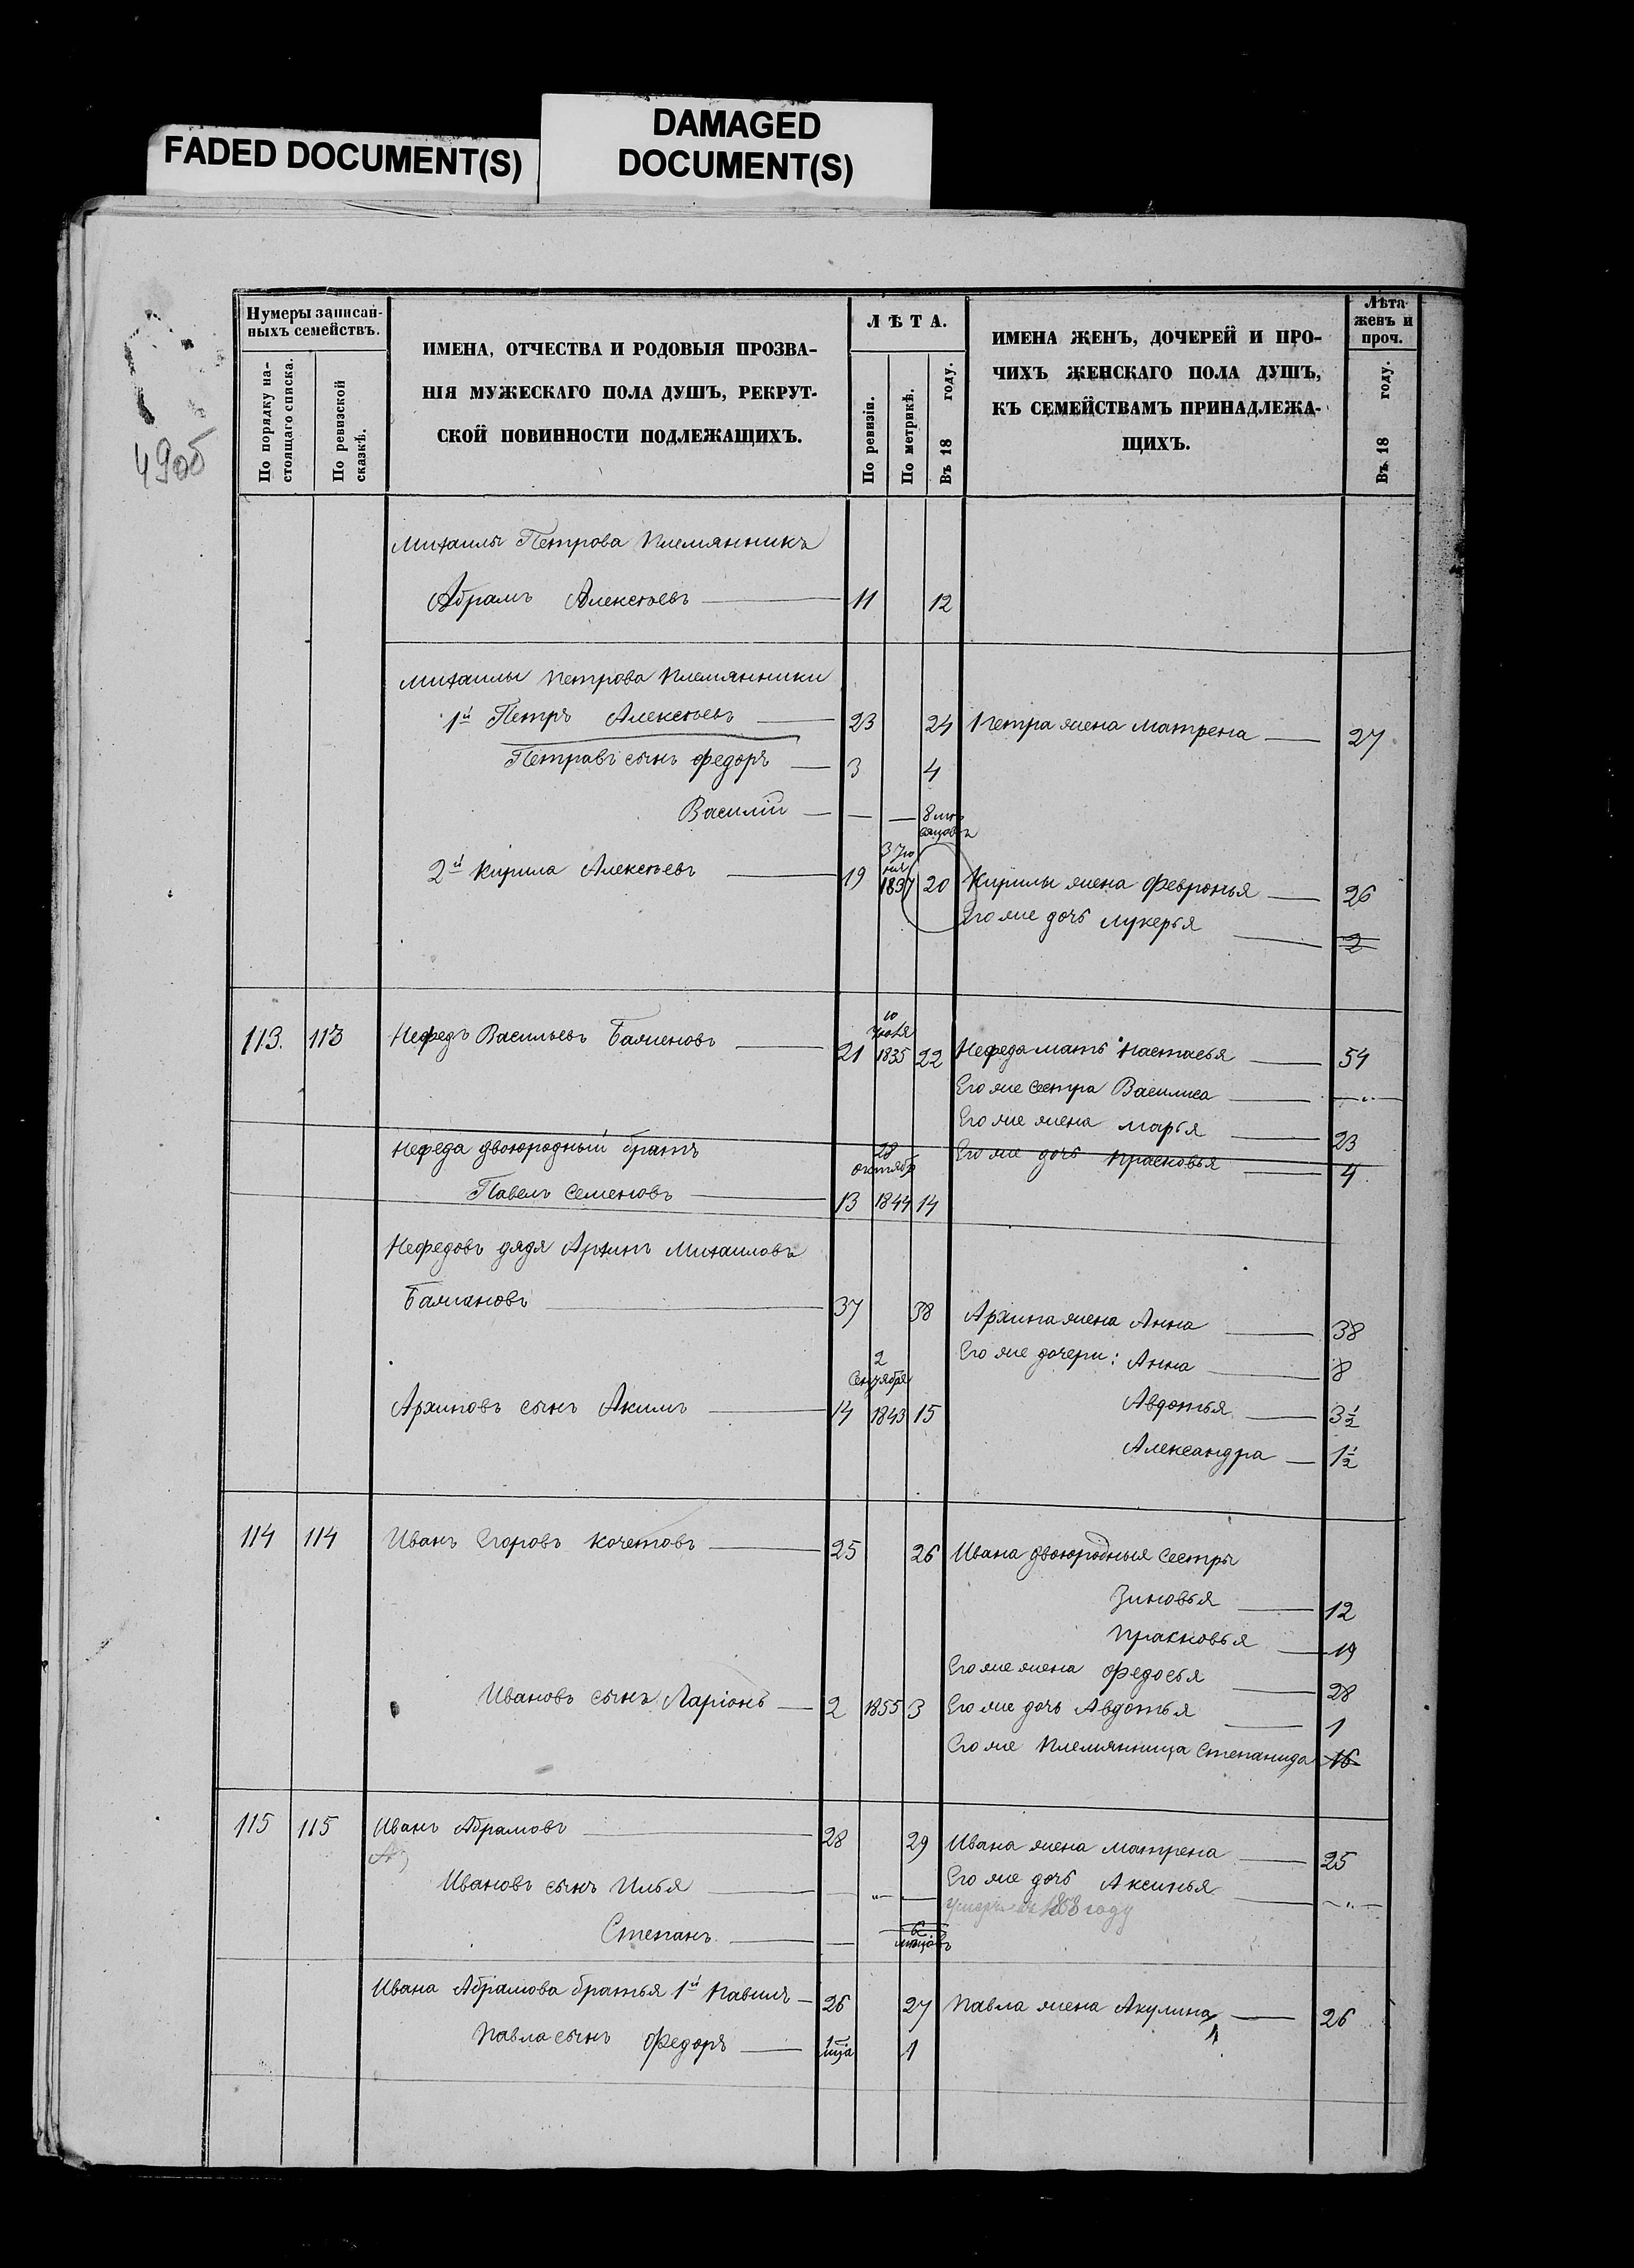 FADED DOCUMENT(S)
DAMAGED
DOCUMENT(S)
49об
Нумеры записан-
ныхъ семействъ.
По порядку на-
стоящаго списка.
По ревизской
сказкѣ.
ИМЕНА, ОТЧЕСТВА И РОДОВЫЯ ПРОЗВА-
НІЯ МУЖЕСКАГО ПОЛА ДУШЪ, РЕКРУТ-
СКОЙ ПОВИННОСТИ ПОДЛЕЖАЩИХЪ.
ЛѢТА.
По ревизіи.
По метрикѣ.
Въ 18 году.
ИМЕНА ЖЕНЪ, ДОЧЕРЕЙ И ПРО-
ЧИХЪ ЖЕНСКАГО ПОЛА ДУШЪ,
КЪ СЕМЕЙСТВАМЪ ПРИНАДЛЕЖА-
ЩИХЪ.
Лѣта
женъ и
проч.
Въ 18 году.
Михаилы Петрова племянникъ
Абрамъ Алексѣевъ 11 12
Михаилы Петрова племянники
1й Петръ Алексѣевъ 23 24 Петра жена Матрена 27
Петравъ сынъ Федоръ 3 4
Василій — — 8 мѣ-
сяцовъ
2й Кирила Алексѣевъ 19 3 Іюня 1837 20 Кирилы жена Февронья 26
Его же дочь Лукерья 2
113. 113 Нефедъ Васильевъ Баженовъ 21 10 1835 22 Нефеда мать Настасья 54
Его же сестра Василиса — „ —
Его же жена Марья 23
Нефеда двоюродный братъ Его же дочь Прасковья 4
Павелъ Семеновъ 13 28 октября 1844 14
Нефедовъ дядя Архипъ Михаиловъ
Бажановъ 37 38 Архипа жена Анна 38
Его же дочери: Анна 8
Архиповъ сынъ Акимъ 14 2 Сентября 1843 15 Авдотья 3½
Александра 1½
114 114 Иванъ Егоровъ Кочетовъ 25 26 Ивана двоюродныя сестры
Зиновья 12
Прасковья 19
Его же жена Федосья 28
Ивановъ сынъ Ларіонъ 2 1855 3 Его же дочь Авдотья 1
Его же племянница Степанида 16
115 115 Иванъ Абрамовъ 28 29 Ивана жена Матрена 25
Ивановъ сынъ Илья — „ — Его же дочь Аксинья — „ —
въ 1858 году
Степанъ — 6 мѣсяцовъ
Ивана Абрамова братья 1й Павилъ 26 27 Павла жена Акулина 26
Павла сынъ Федоръ 1 мца 1